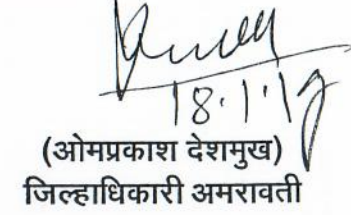 18.1.19
(ओमप्रकाश देशमुख)
जिल्हाधिकारी अमरावती